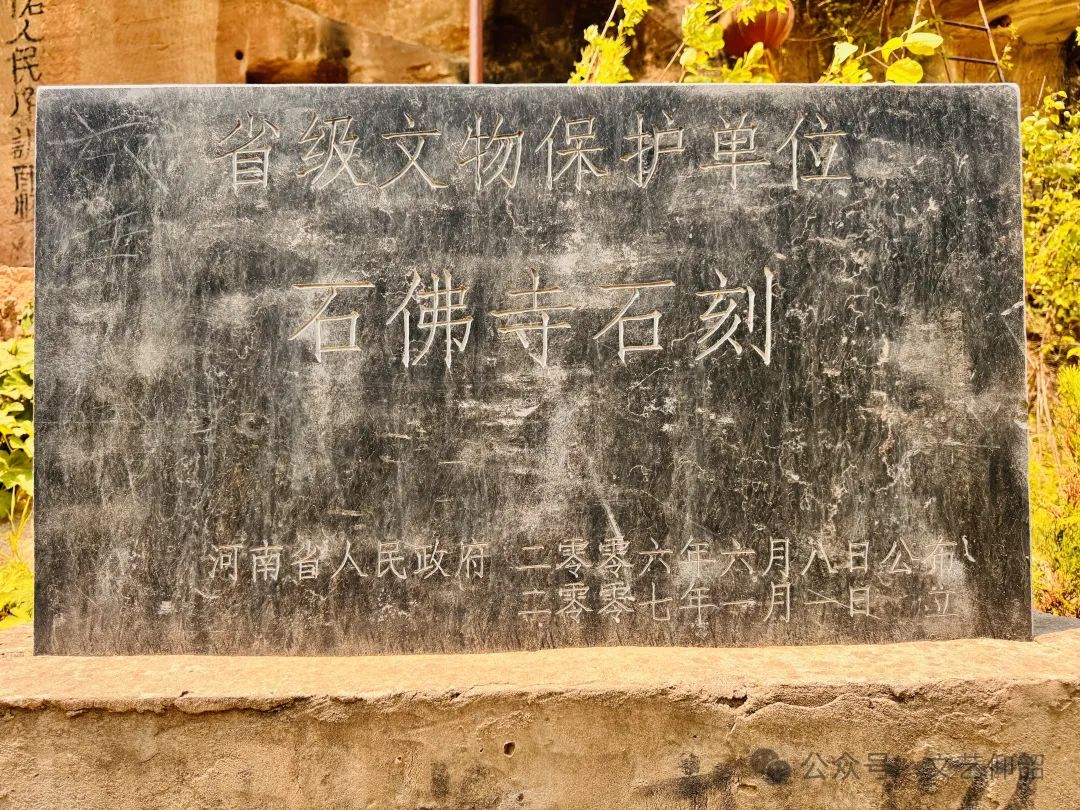 省级文物保护单位
石佛寺石刻
河南省人民政府 二零零六年六月八日公布
二零零七年一月一日 立
公众号 文艺仰韶